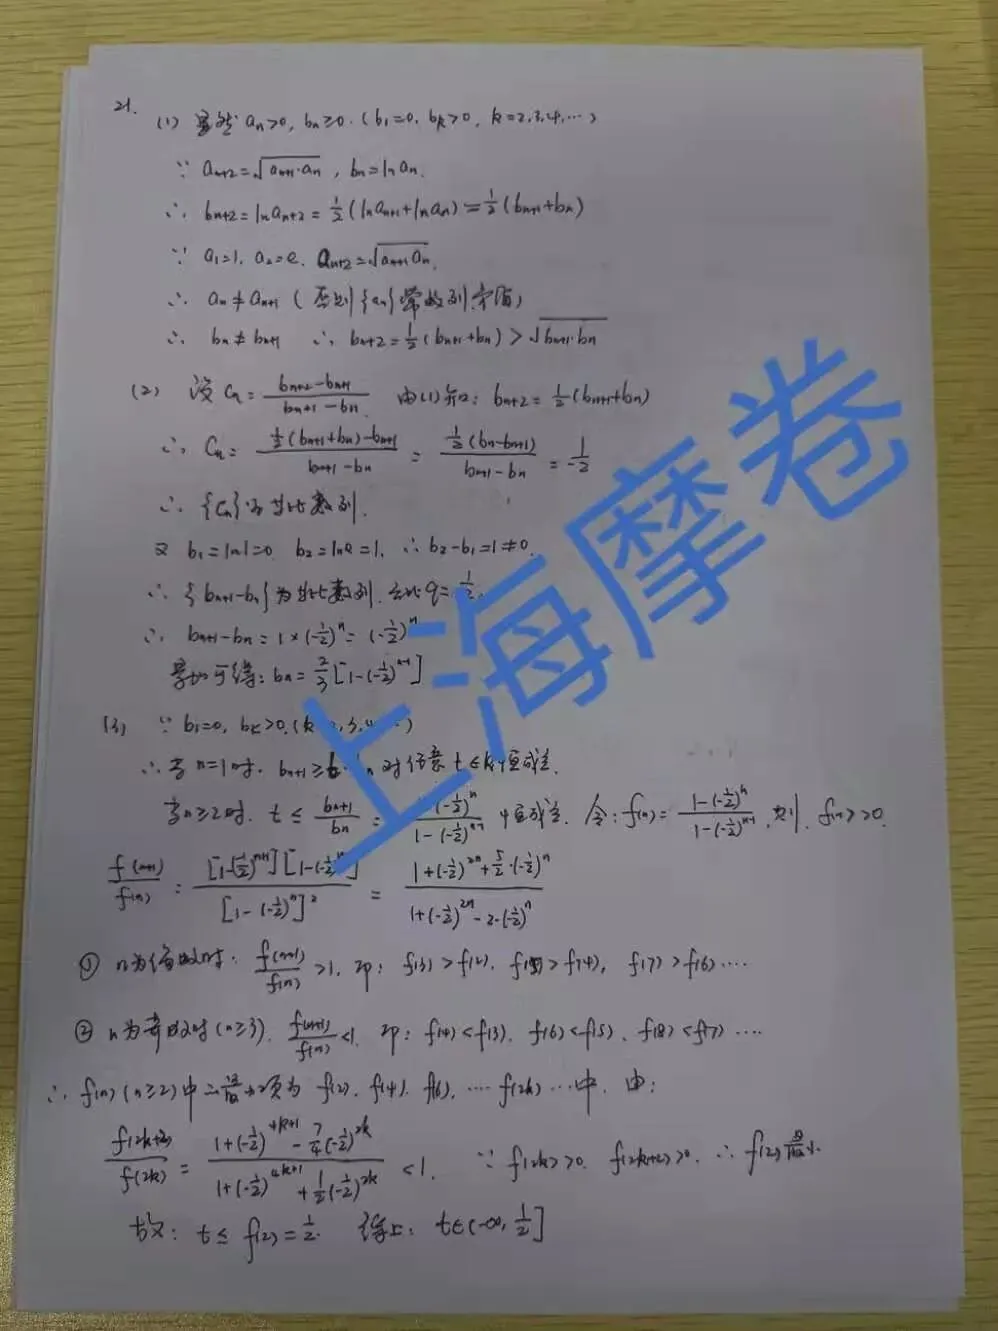 21.
(1) 显然 an>0, bn≥0. (b1=0, bk>0, k=2,3,4,…)
∵ an+2=√(an+1·an), bn=ln an.
∴ bn+2=ln an+2=1/2(ln an+1+ln an)=1/2(bn+1+bn)
∵ a1=1, a2=e, an+2=√(an+1 an).
∴ an≠an+1 (否则{an}常数列,矛盾)
∴ bn≠bn+1 ∴ bn+2=1/2(bn+1+bn)>√(bn+1·bn)
(2) 设 Cn=(bn+2-bn+1)/(bn+1-bn). 由(1)知: bn+2=1/2(bn+1+bn)
∴ Cn=(1/2(bn+1+bn)-bn+1)/(bn+1-bn)=(1/2(bn-bn+1))/(bn+1-bn)=-1/2
∴ {Cn}为等比数列.
又 b1=ln1=0, b2=lne=1, ∴ b2-b1=1≠0.
∴ {bn+1-bn}为等比数列, 公比q=-1/2,
∴ bn+1-bn=1×(-1/2)^n=(-1/2)^n
累加可得: bn=2/3[1-(-1/2)^n-1]
(3) ∵ b1=0, bk>0, (k
∴ 当n=1时, bn+1≥t· n 对任意 t∈R恒成立.
当n≥2时, t≤bn+1/bn= (-1/2)^n/(1-(-1/2)^n-1) 恒成立. 令: f(n)=(1-(-1/2)^n)/(1-(-1/2)^n-1), 则 f(n)>0.
f(n+1)/f(n)=([1-(-1/2)^n+1][1-(-1/2)^n-1])/[1-(-1/2)^n]^2=(1+(-1/2)^2n+5/2·(-1/2)^n)/(1+(-1/2)^2n-2·(-1/2)^n)
① n为偶数时: f(n+1)/f(n)>1, 即: f(3)>f(2), f(5)>f(4), f(7)>f(6)….
② n为奇数时(n≥3), f(n+1)/f(n)<1, 即: f(4)<f(3), f(6)<f(5), f(8)<f(7)….
∴ f(n)(n≥2)中最小项为 f(2), f(4), f(6), …. f(2k)…中, 由:
f(2k+2)/f(2k)=(1+(-1/2)^4k+1-7/4(-1/2)^2k)/(1+(-1/2)^4k+1+1/2(-1/2)^2k)<1. ∵ f(2k)>0, f(2k+2)>0, ∴ f(2)最小.
故: t≤f(2)=1/2. 综上: t∈(-∞, 1/2]
上海摩卷